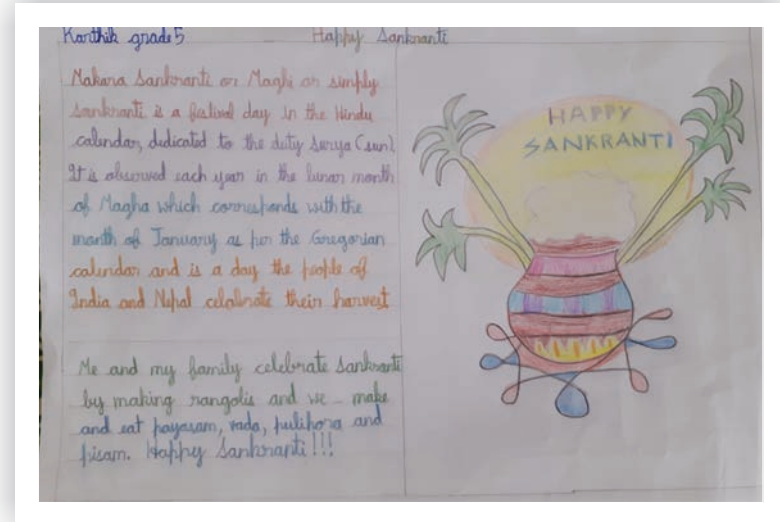 Karthik grade 5
Happy Sankranti
Makara Sankranti or Maghi or simply
Sankranti is a festival day in the Hindu
calendar, dedicated to the duty Surya (sun).
It is observed each year in the lunar month
of Magha which corresponds with the
month of January as per the Gregorian
calendar and is a day the people of
India and Nepal celabrate their harvest
Me and my family celebrate Sankranti
by making rangolis and we make
and eat payasam, vada, pulihora and
pisam. Happy Sankranti!!!
HAPPY
SANKRANTI